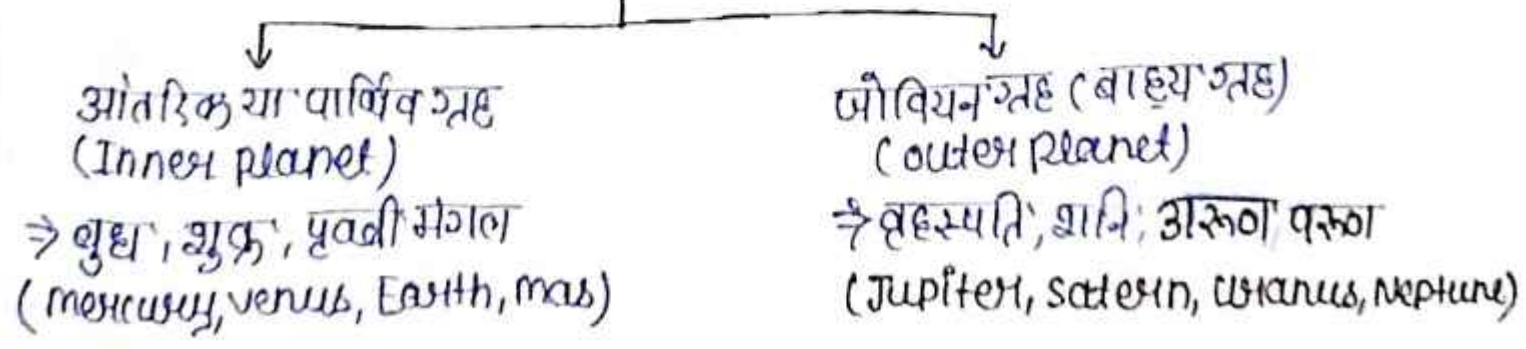 आंतरिक या पार्थिव ग्रह
(Inner planet)
⇒ बुध, शुक्र, पृथ्वी मंगल
(Mercury, venus, Earth, mas)
जोवियन ग्रह (बाह्य ग्रह)
(outer planet)
⇒ वृहस्पति, शनि, अरूण वरूण
(Jupiter, satern, uranus, Neptune)